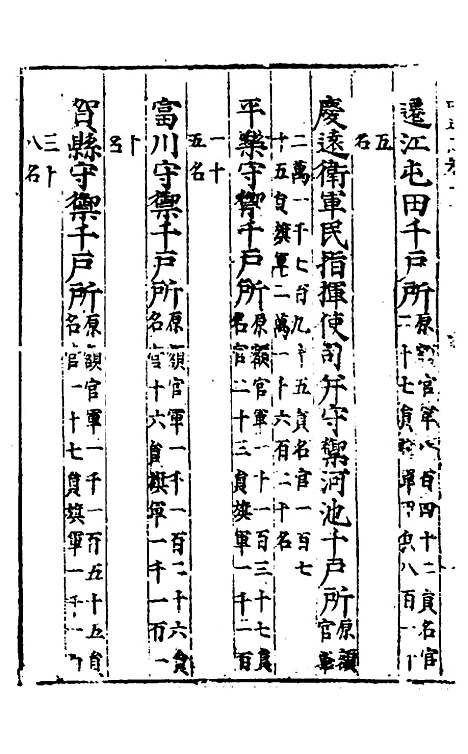 遷江屯田千戶所
原額官軍八百四十二員名官
二十七員旗軍八百一十
五
名
慶遠衛軍民指揮使司并守禦河池千戶所
原額
官軍
二萬一千七百九十五員名官一百七
十五員旗軍二萬一千六百二十名
平樂守禦千戶所
原額官軍一千一百三十七員
名官二十三員旗軍一千二百
一十
五名
富川守禦千戶所
原額官軍一千一百二十六員
名官十六員旗軍一千一百一
十
名
賀縣守禦千戶所
原額官軍一千一百五十五員
名官一十七員旗軍一千一百
三十
八名